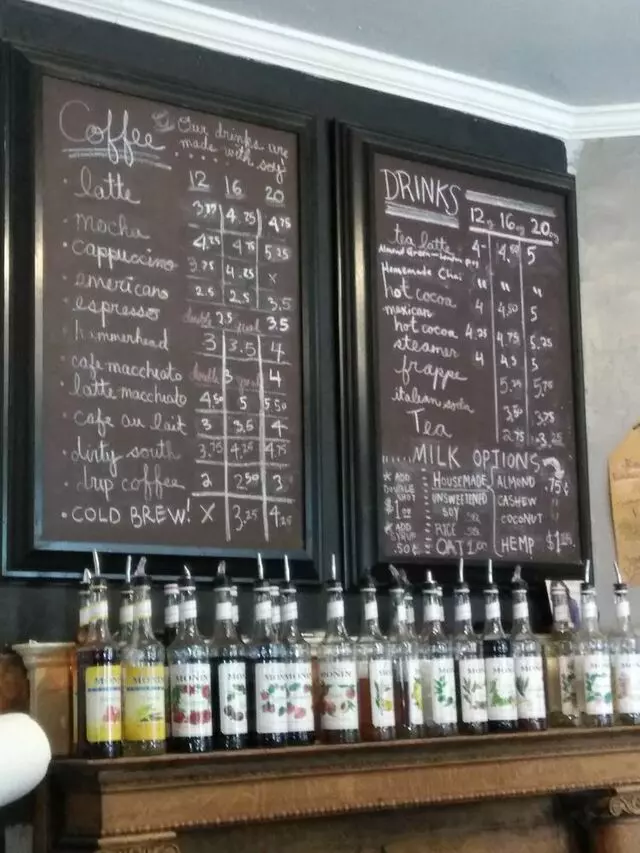 Coffee Our drinks are
made with soy
12 16 20
latte 3.75 4.25 4.75
mocha 4.25 4.75 5.25
cappuccino 3.75 4.25 X
americano 2.5 2.5 3.5
espresso double 2.5 quad 3.5
hammerhead 3 3.5 4
cafe macchiato double 3 quad 4
latte macchiato 4.50 5 5.50
cafe au lait 3 3.5 4
dirty south 3.75 4.25 4.75
drip coffee 2 2.50 3
COLD BREW! X 3.25 4.25
DRINKS
12oz 16oz 20oz
tea latte 4- 4.50 5
Homemade Chai " " "
hot cocoa 4 4.50 5
mexican
hot cocoa 4.25 4.75 5.25
steamer 4 4.5 5
frappe 5.25 5.75
italian soda 3.50 3.75
Tea 2.75 3.25
MILK OPTIONS
* ADD
DOUBLE
SHOT
$1.00
* ADD
SYRUP
.50¢
HOUSEMADE
UNSWEETENED
SOY .50
RICE .50
OAT 1.00
ALMOND .75¢
CASHEW
COCONUT
HEMP
MONIN
MONIN
MONIN
MONIN